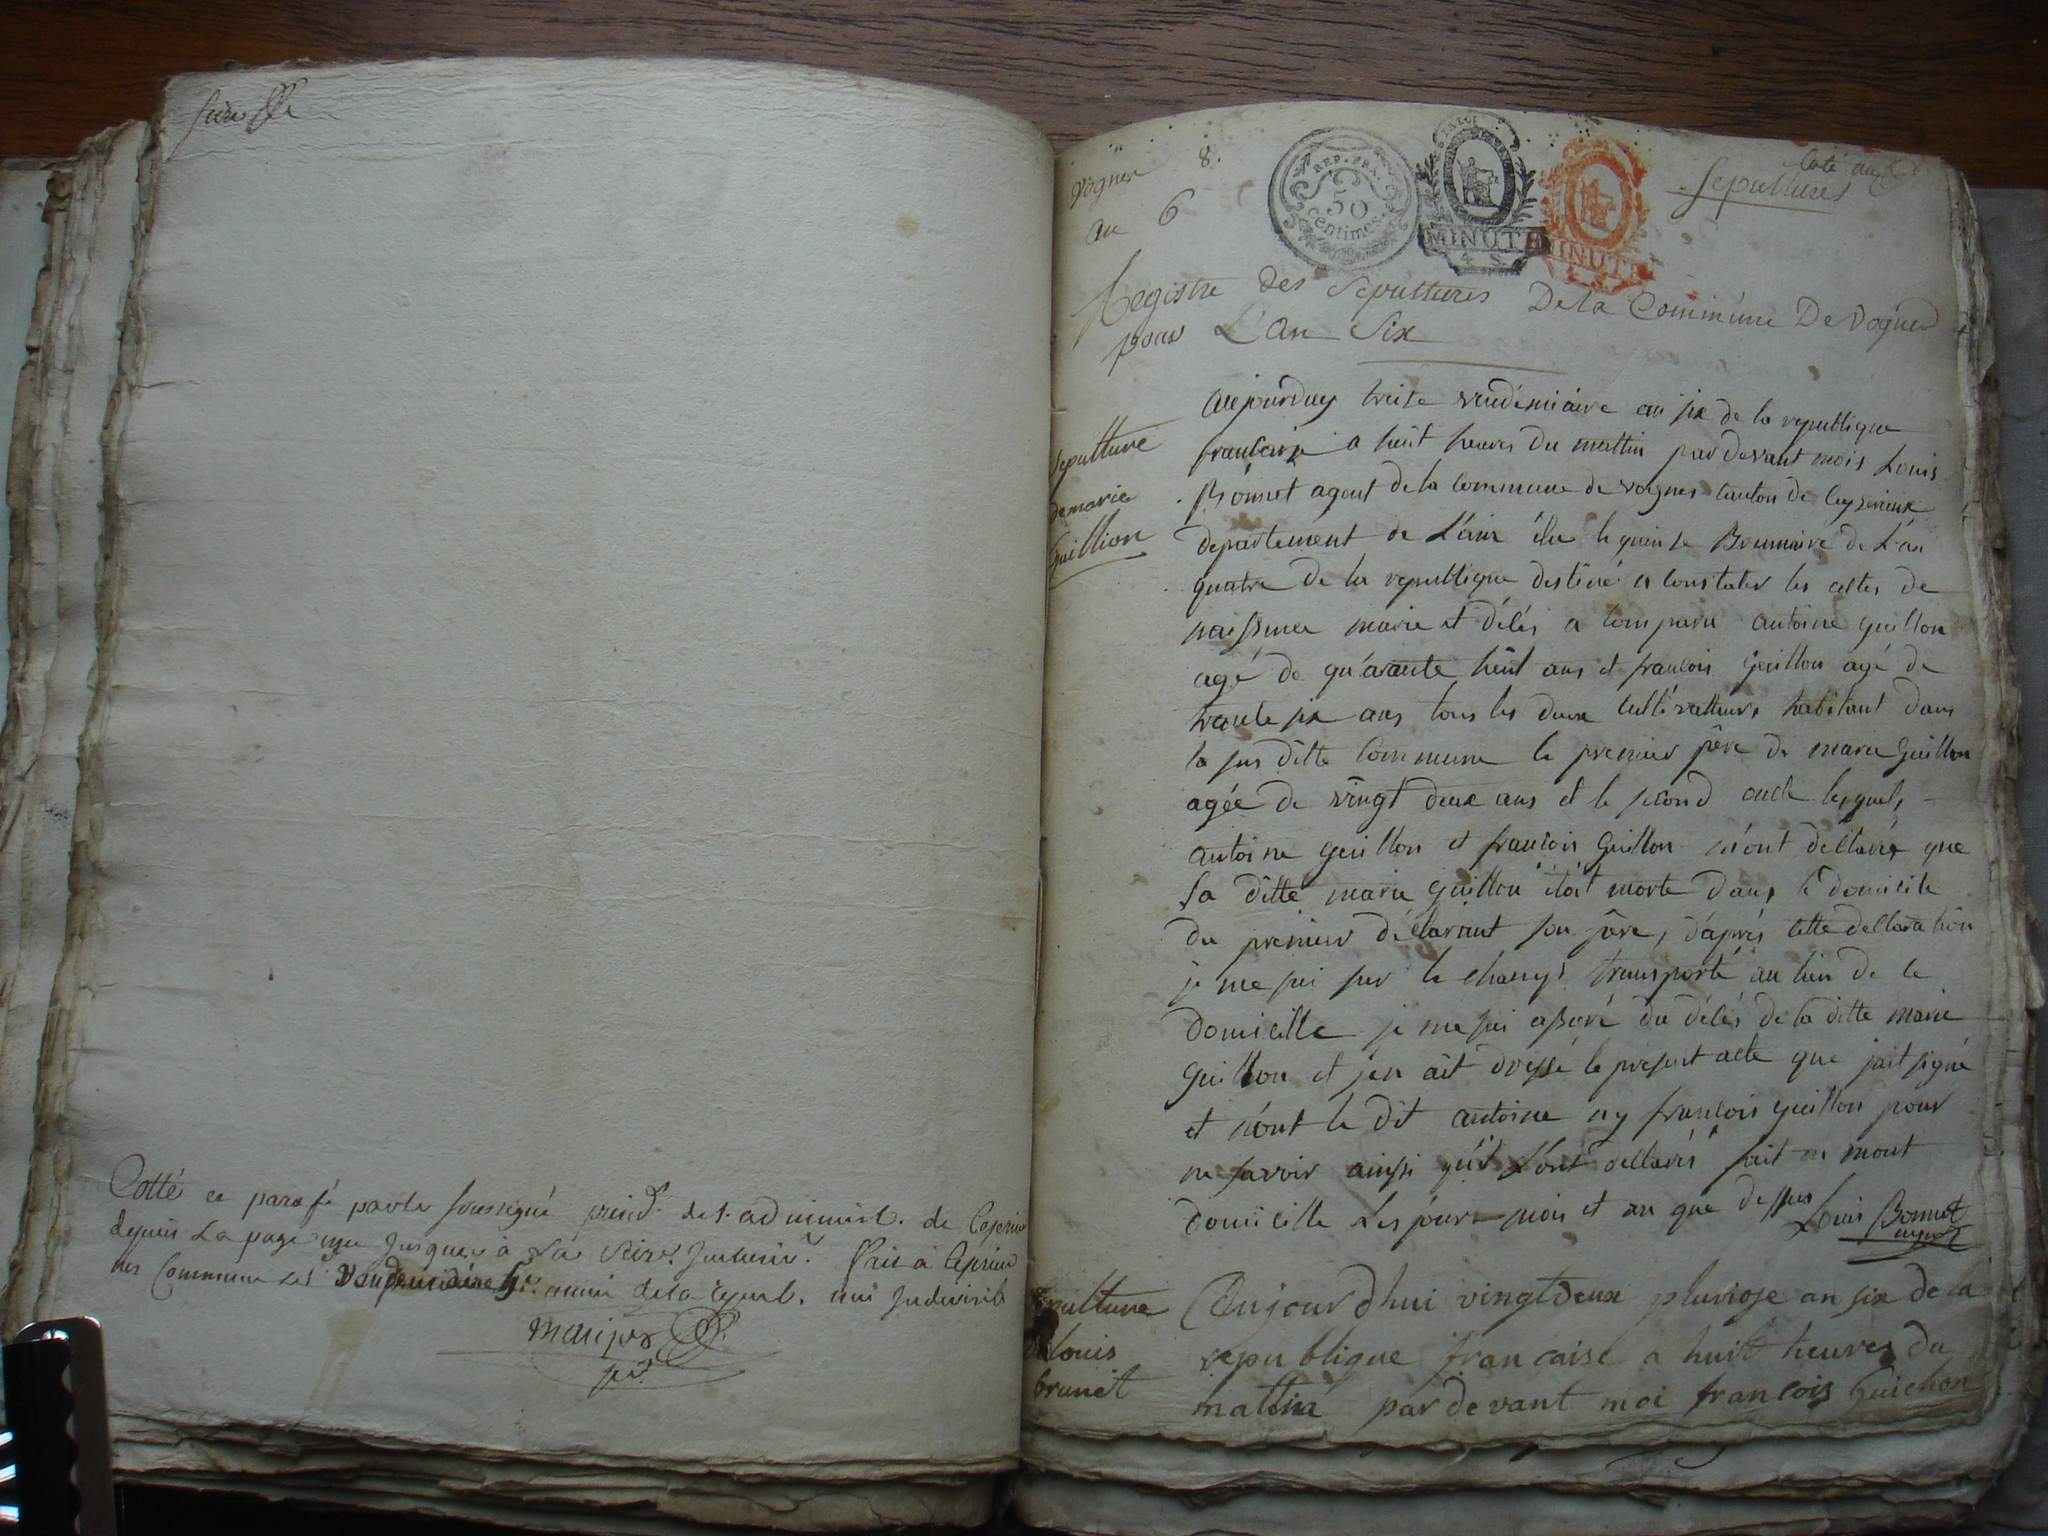 Cotté et paraffé par le soussigné présid. de l'administ. de Ceyzerieu
depuis la page une jusques à la
des Communes Vendemiaire 6e. année de la répub. une Indivisible
Vognes 8.
an 6
REP. FRA.
50
centimes
MINUTE
4 S
MINUTE
4 S
Coté
Sepultures
Registre des Sepultures De la Commúne De Vognes
pour L'an Six
Sepulture
de marie
Guillion
aujourduy treise vendémiaire an six de la republique
francaise a huit heures du mattin par devant mois Louis
Bonnet agent de la Commune de vognes canton de Ceyzerieux
departement de L'ain élu le quinse Brumaire de L'an
quatre de la republique destiné a constater les actes de
naissance marie et décés a comparu antoine guillon
agé de quarante huit ans et francois guillon agé de
trante six ans tous les deux cultivatteurs habitant dans
la sus ditte Commune le premier père de marie Guillon
agée de vingt deux ans et le second oncle lesquels
antoine guillon et francois Guillon m'ont déclarés que
la ditte marie guillon étoit morte dans le domicile
du premier déclarant son père, d'après cette déclaration
je me sui sur le champs transporté au lieu de ce
domicille je me sui assuré du décés de la ditte marie
guillon et j'en ait dressé le présent acte que j'ait signé
et n'ont le dit antoine ny francois guillon pour
ne savoir ainsi qu'il L'ont déclarés fait en mont
domicille Les jours mois et an que dessus Louis Bonnet
agent
Sepulture
de Louis
brunet
Aujourd'hui vingtdeux pluviose an six de la
republique francaise a huit heures du
matin par devant moi françois Guichon